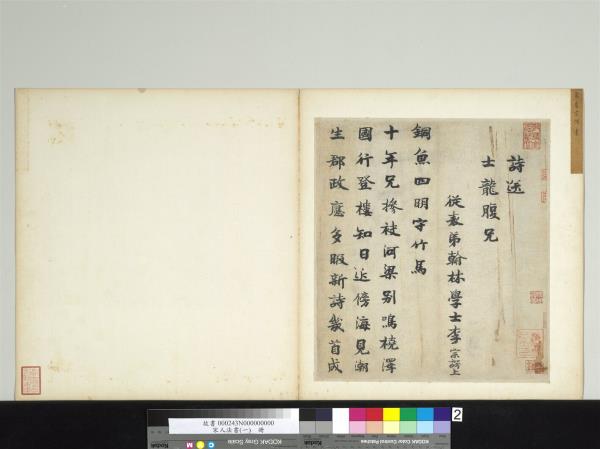 詩送
士龍腹兄
從表弟翰林學士李宗諤上
銅魚四明守竹馬
十年兄摻袪河梁別鳴橈澤
國行登樓知日近傍海見潮
生郡政應多暇新詩幾首成
故書 000243N000000000
宋人法書(一) 冊
2
KODAK Color Control Patches
Kodak
KODAK Gray Scale
C M Y